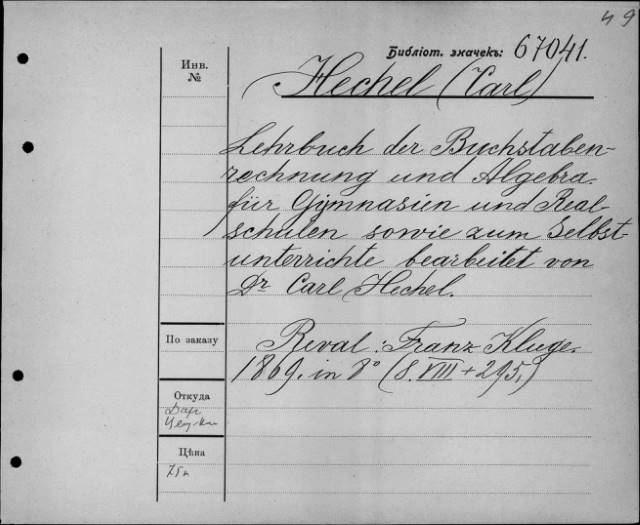 49
Библіот. значекъ: 67041.
Инв.
№
Hechel (Carl)
Lehrbuch der Buchstaben-
rechnung und Algebra
für Gymnasien und Real-
schulen sowie zum Selbst-
unterrichte bearbeitet von
Dr Carl Hechel.
По заказу
Reval: Franz Kluge.
1869. in 8° (S. VIII + 295.)
Откуда
Цѣна
75к